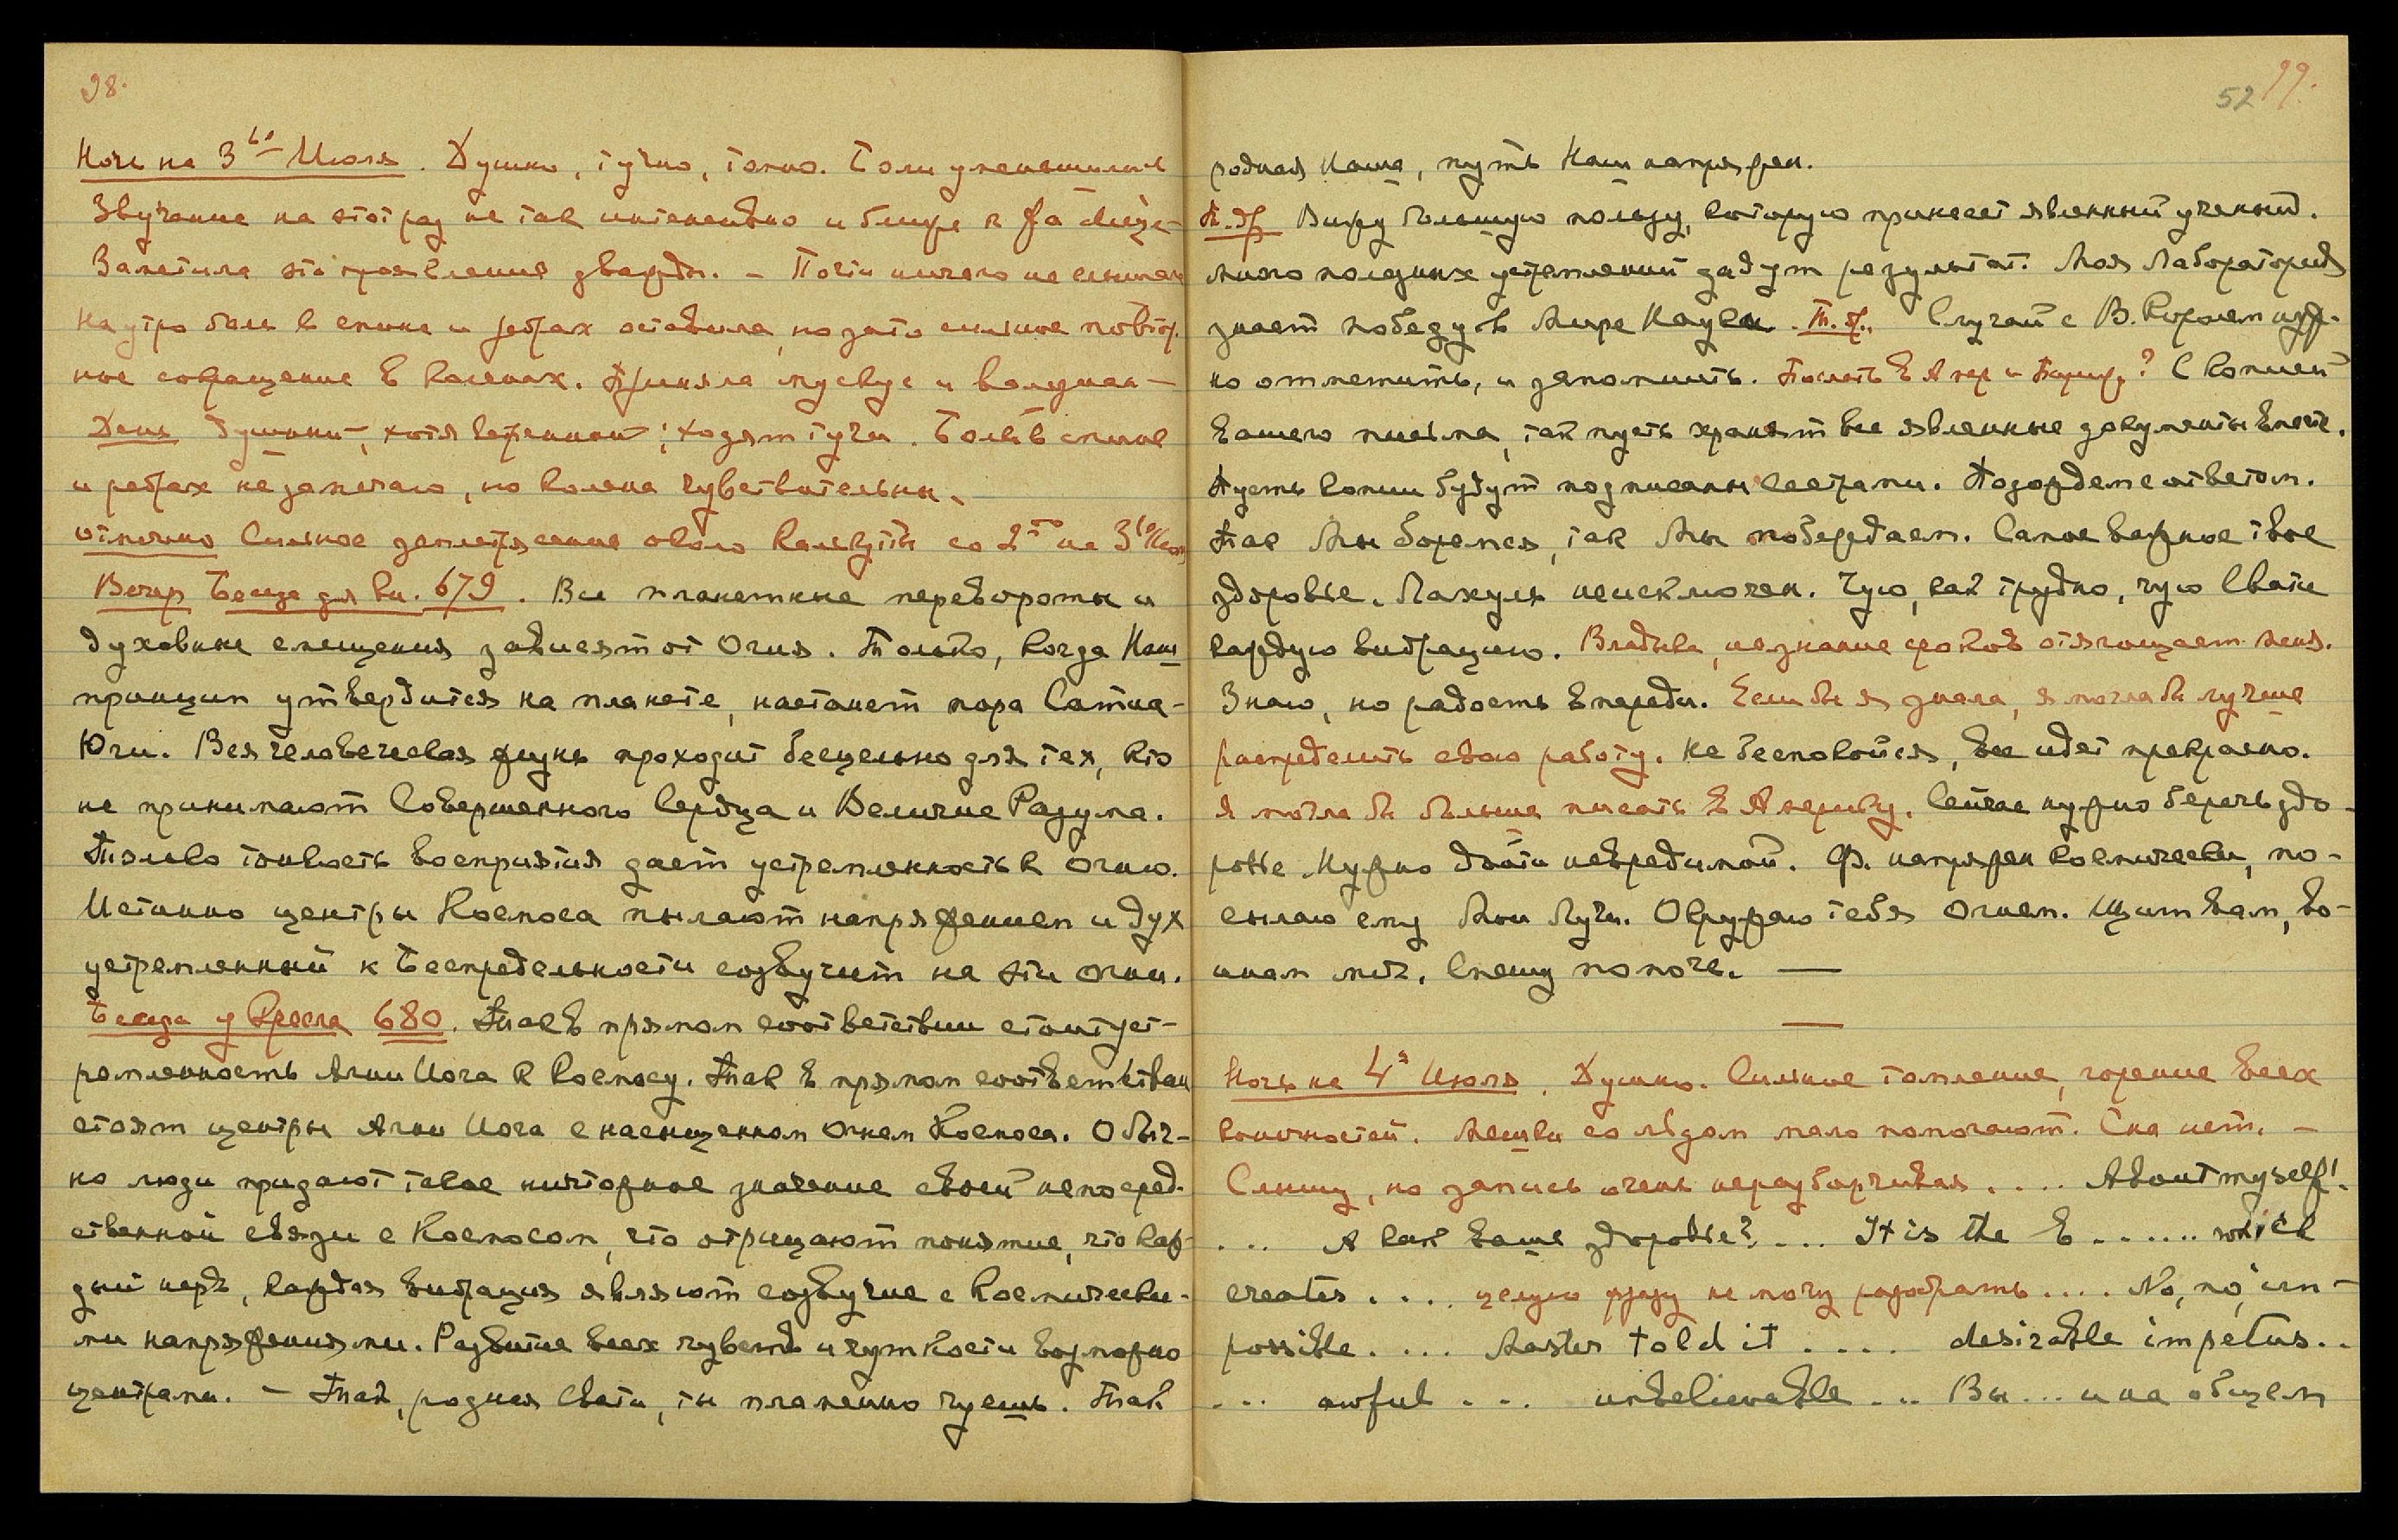 98.
Ночь на 3ью Июля. Душно, тучно, томно. Боли уменьшились
Звучание на этот раз не так интенсивно и ближе к фа
Заметила это проявление дважды. — Почти ничего не слышала
На утро боль в спине и ребрах оставила, но зато сильное повтор-
ное сокращение в коленях. Приняла мускус и
День душный, хотя ветренный; ходят тучи. Боль в спине
и ребрах не замечаю, но колена чувствительны.
отмечено сильное землетрясение около Калькутты со 2го на 3ье Июля
Вечер Беседа для кн. 679. Все планетные перевороты и
духовные смещения зависят от Огня. Только, когда Наш
принцип утвердится на планете, настанет пора Сатиа-
Юги. Вся человеческая жизнь проходит бесцельно для тех, кто
не принимают Совершенного Сердца и Величие Разума.
Только тонкость восприятия дает устремленность к огню.
Истинно центры Космоса пылают напряжением и дух
устремленный к Беспредельности созвучит на эти огни.
Беседа у Кресла 680. Так в прямом соответствии стоит уст-
ремленность Агни Йога к Космосу. Так в прямом соответствии
стоят центры Агни Йога с насыщенным огнем Космоса. Обыч-
но люди придают такое ничтожное значение своей непосред-
ственной связи с Космосом, что отрицают понятие, что каж-
дый нерв, каждая вибрация являют созвучие с Космически-
ми напряжениями. Развитие всех чувств и чуткости возможно
центрами. — Так, родная Свати, ты пламенно чуешь. Так
52 99.
родная Наша, путь Наш напряжен.
Т. др. Вижу большую пользу, которую принесет явленный ученый.
Много полезных устремлений дадут результат. Моя Лаборатория
знает победу в Мире Науки. Т. др. Случай с В. Кор нуж-
но отметить, и запомнить. Послать в Амер и Париж? С копией
вашего письма, так пусть хранят все явленные документы вместе.
Пусть копии будут подписаны сестрами. Подождем с ответом.
Так Мы боремся, так Мы побеждаем. Самое важное твое
здоровье. Пахуль не исключен. Чую, как трудно, чую Свати
каждую вибрацию. Владыка, незнание сроков отягощает меня.
Знаю, но радость впереди. Если бы я знала, я могла бы лучше
распределить свою работу. Не беспокойся, все идет прекрасно.
Я могла бы больше писать в Америку. Сейчас нужно беречь здо-
ровье Нужно дойти невредимой. Ф. напряжен космически, по-
сылаю ему Мои Лучи. Окружаю тебя Огнем. Щит вам, во-
инам меч. Спешу помочь. —
Ночь на 4е Июля. Душно. Сильное томление, горение всех
конечностей. Мешки со льдом мало помогают. Сна нет. —
Слышу, но запись очень неразборчивая .... About myself!
... А как ваше здоровье? ... It is the E ....... which
creates .... целую фразу не могу разобрать .... No, no, im-
possible .... Master told it .... desirable impetus..
... awful ... unbelievable ... Вы ... и на общем